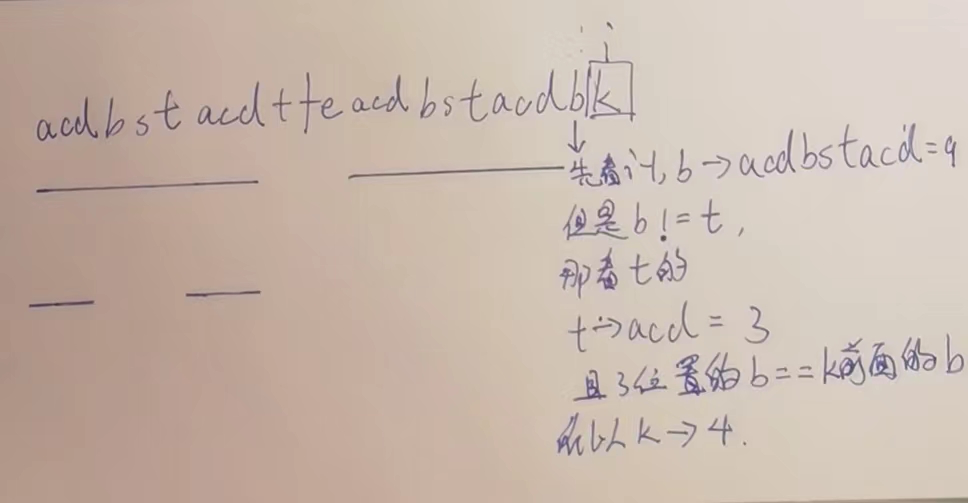 i
acdbstacdtteacdbstacdbk
先看i-1,b→acdbstacd=9
但是b!=t,
那看t的
t→acd=3
且3位置的b==k前面的b
所以k→4.